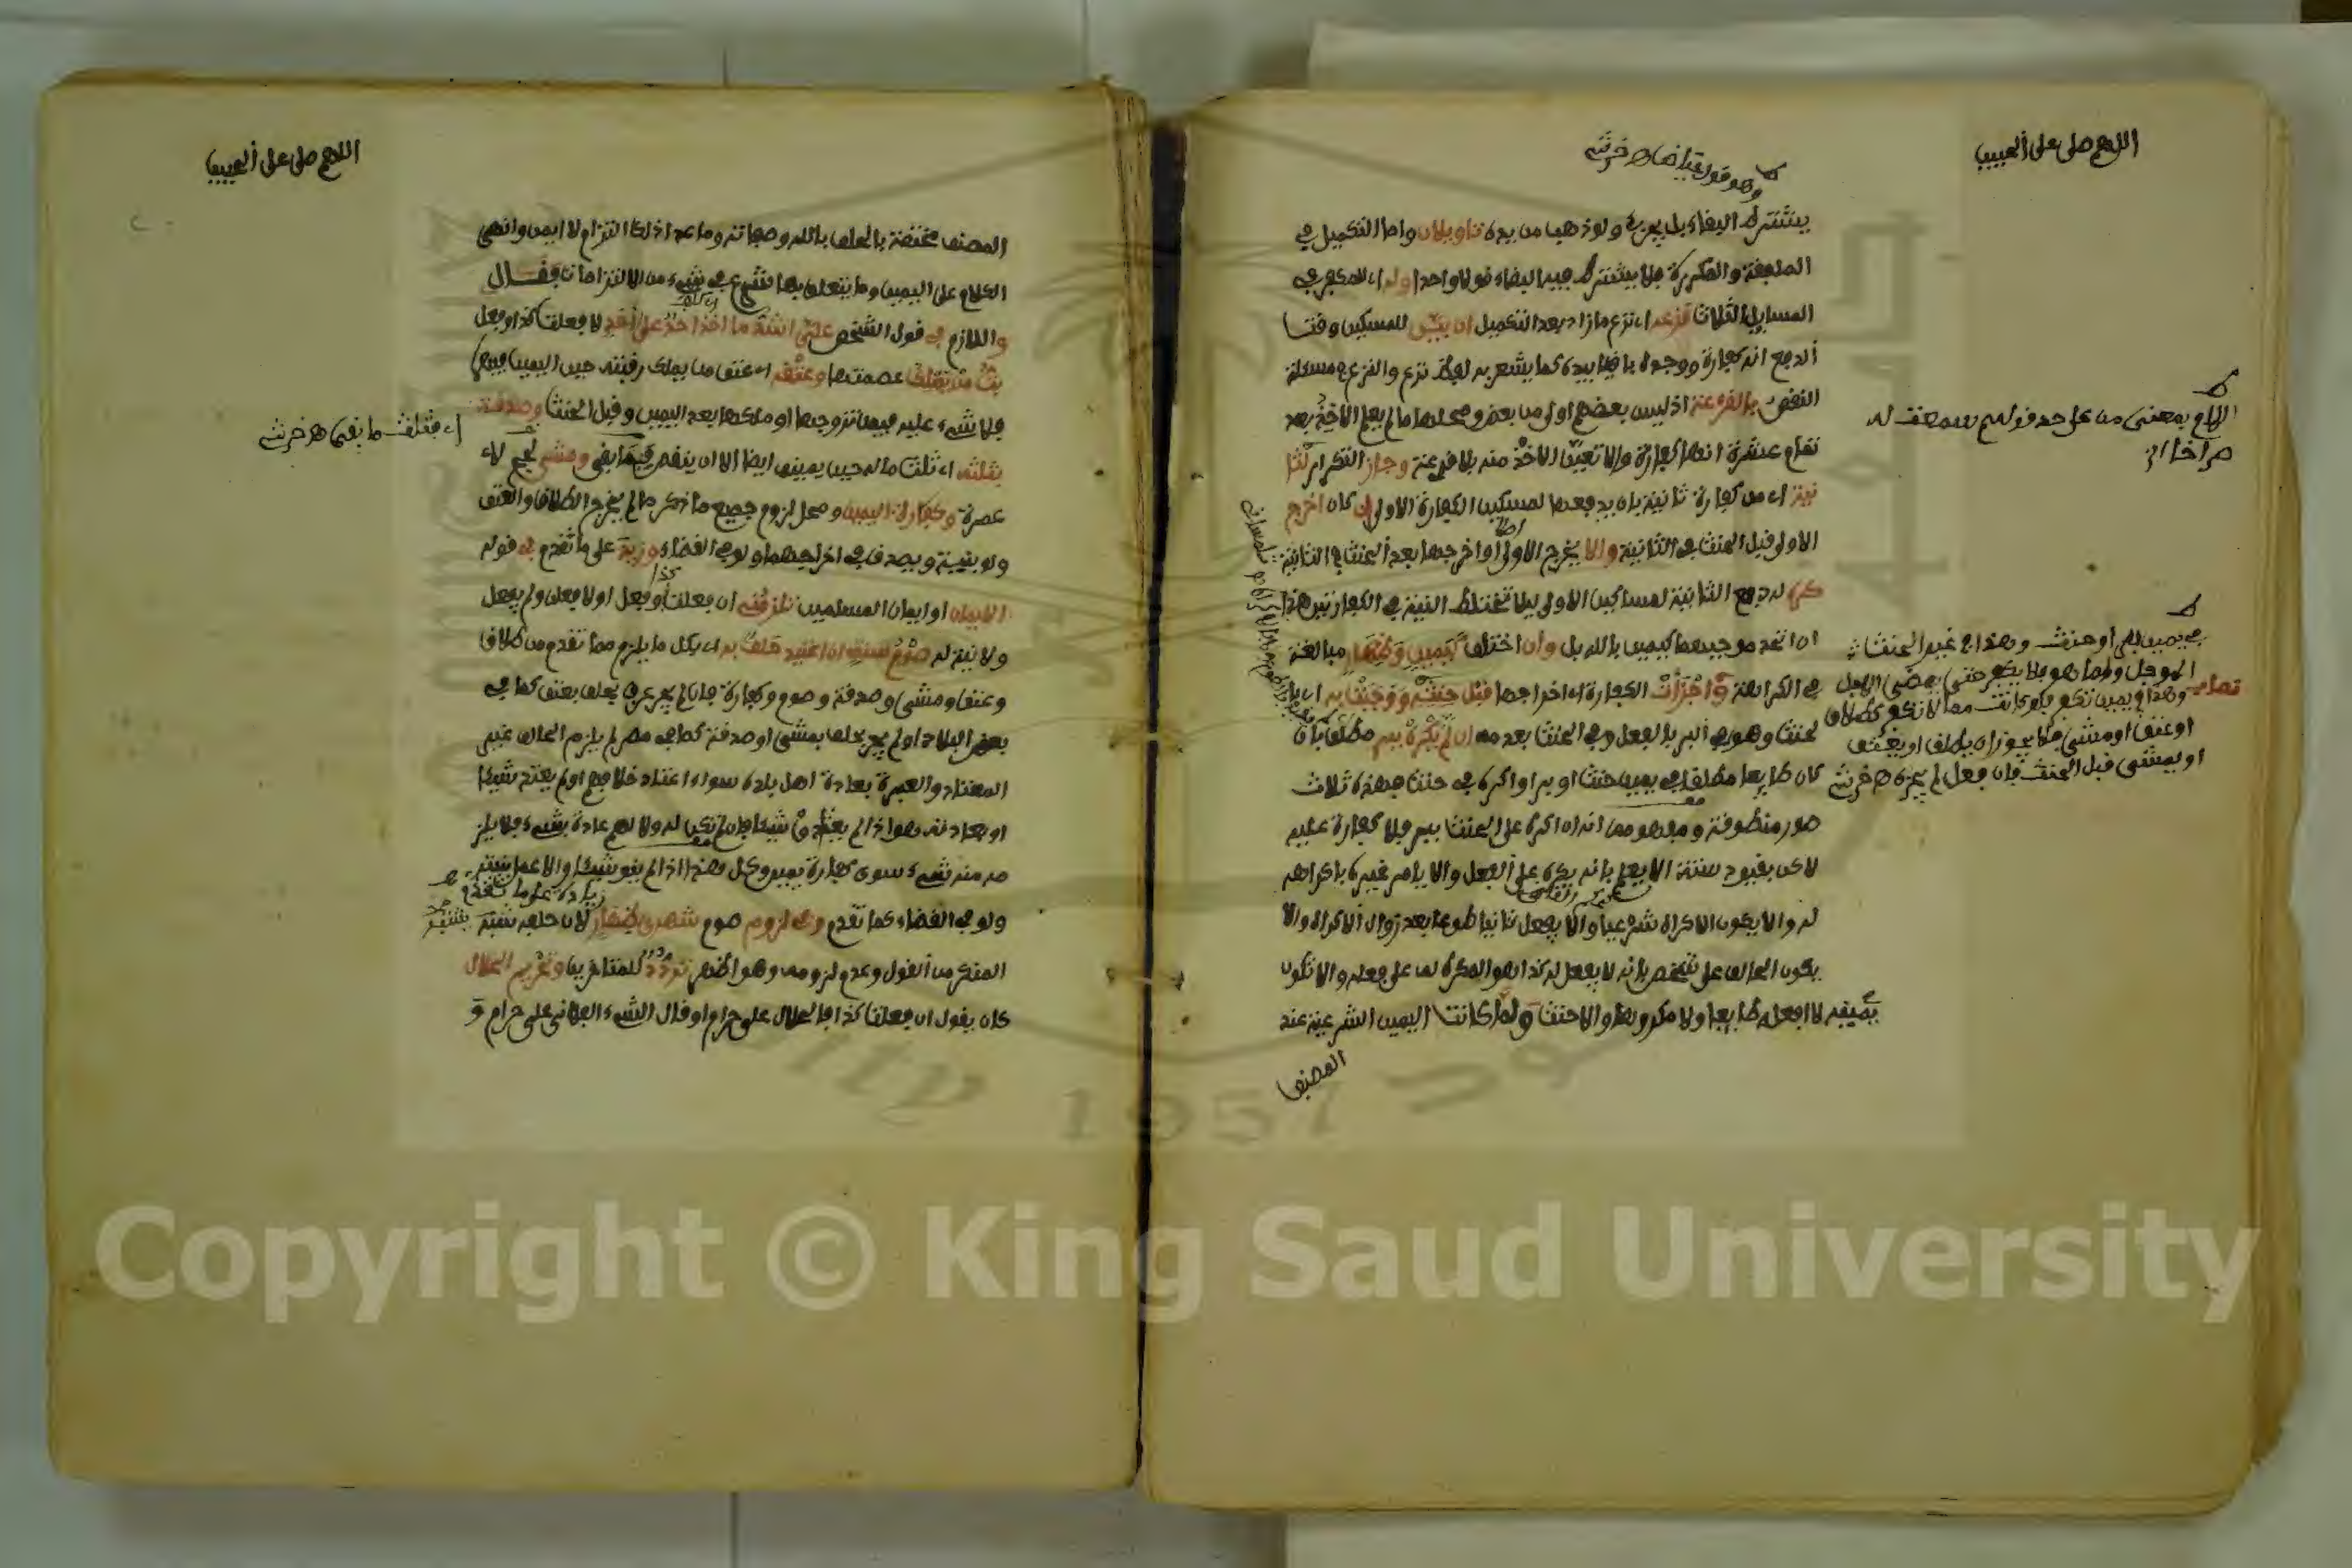 اللهم صلى على الحبيب
وهو قول عياض اه خرشي
يشترط البقاء بل يجزئ ولو ذهب من يده تاويلان واما التكميل في
الملفقة والمكررة فلا يشترط فيه البقاء قولا واحدا وله اى للمكفر في
المسايل الثلاث نزعه اى نزع ما زاد بعد التكميل ان بين للمسكين وقت
الدفع انه كفارة ووجده باقيا بيده كما يشعر به لفظ نزع والنزع في مسئلة
النقص بالقرعة اذ ليس بعضهم اولى من بعض ومحلها ما لم يعلم الآخذ بعد
تمام عشرة انها كفارة والا تعين الاخذ منه بلا قرعة وجاز التكرار لثا
نية اى من كفارة ثانية بان يدفعها لمسكين الكفارة الاولى ان كان اخرج
الاولى قبل الحنث في الثانية والا يخرج الاولى اصلا او اخرجها بعد الحنث في الثانية
كره له دفع الثانية لمساكين الاولى ليلا تختلط النية في الكفارتين هذا
ان اتحد موجبهما كيمين بالله بل وان اختلف كيمين وظهار مبالغة
في الكراهة واجزأت الكفارة اى اخراجها قبل حنثه ووجبت به اى بال
حنث وهو في البر بالفعل وفي الحنث بعدمه ان لم يكره ببر مطلق بان
كان طايعا مطلقا في يمين حنث او بر او اكره في حنث فهذه ثلاث
صور منطوقة ومفهومها انه ان اكره على الحنث ببر فلا كفارة عليه
لاكن بقيود ستة الا يعلم بانه يكره على الفعل والا يامر غيره باكراهه
له والا يكون الاكراه شرعيا والا يفعل ثانيا طوعا بعد زوال الاكراه والا
يكون الحالف على شخص بانه لا يفعل كذا هو المكره له على فعله والا تكون
يمينه لا افعله طايعا ولا مكروها والا حنث ولما كانت اليمين الشرعية عند
المصنف
اللام بمعنى من على حد قولهم سمعت له
صراخا اه
في يمين بر او حنث وهذا في غير الحنث
الموجل واما هو فلا يكفر حتى يمضي الاجل
وهذا في يمين تكفر فلو كانت مما لا تكفر كطلاق
او عتق او مشي فلا يجوز ان يطلق او يعتق
او يمشي قبل الحنث فان فعل لم يجزه اه خرشي
اللهم صلى على الحبيب
المصنف مختصة بالحلف بالله وصفاته وما عدا ذلك التزام لا ايمن وانهى
الكلام على اليمين وما يتعلق بها شرع في شيء من الالتزامات فقال
واللازم في قول الشخص علي اشد ما اخذ احد على احد لا فعلت كذا وفعل
بت من يملك عصمتها وعتقه اى عتق من يملك رقبته حين اليمين فيهما
فلا شيء عليه فيمن تزوجها او ملكها بعد اليمين وقبل الحنث وصدقة
بثلثه اى ثلث ماله حين يمينه ايضا الا ان ينقص فما بقى ومشي لحج لا
عمرة وكفارة اليمين ومحل لزوم جميع ما ذكر ما لم يخرج الطلاق والعتق
ولو بنية ويصدق في اخراجهما ولو في القضاء وزيد على ما تقدم في قوله
الايمان او ايمان المسلمين تلزمني ان فعلت كذا وفعل او لا فعلن ولم يفعل
ولا نية له صوم سنة ان اعتيد حلف به اى بكل ما يلزم مما تقدم من طلاق
وعتق ومشي وصدقة وصوم وكفارة فان لم يجر عرف بحلف بعتق كما في
بعض البلاد او لم يجر بحلف بمشي او صدقة كما في مصر لم يلزم الحالف غير
المعتاد والعبرة بعادة اهل بلده سواء اعتاد خلافهم او لم يعتد شيئا
او بعادته هو اذا لم يعتادوا شيئا فان لم تكن له ولا لهم عادة بشيء فلا يلز
مه منه شيء سوى كفارة يمين وكل هذا اذا لم ينو شيئا والا عمل بنيته
ولو في القضاء كما تقدم وفي لزوم صوم شهري ظهار زيادة على ما تقدم لان حلفه شبيه بشبه
المنكر من القول وعدم لزومه وهو الاظهر تردد للمتاخرين وتحريم الحلال
كان يقول ان فعلت كذا فالحلال علي حرام او قال الشيء الفلاني علي حرام و
اى فثلث ما بقى اه خرشي